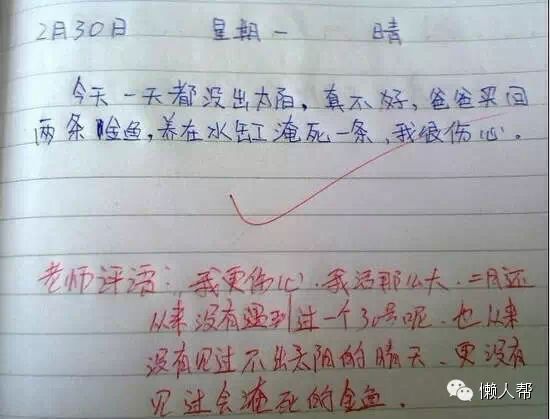 2月30日 星期一 晴
今天一天都没出太阳，真不好，爸爸买回
两条金鱼，养在水缸淹死一条，我很伤心。
老师评语：我更伤心．我活那么大．二月还
从来没有遇到过一个30号呢．也从来
没有见过不出太阳的晴天．更没有
见过会淹死的金鱼．
懒人帮